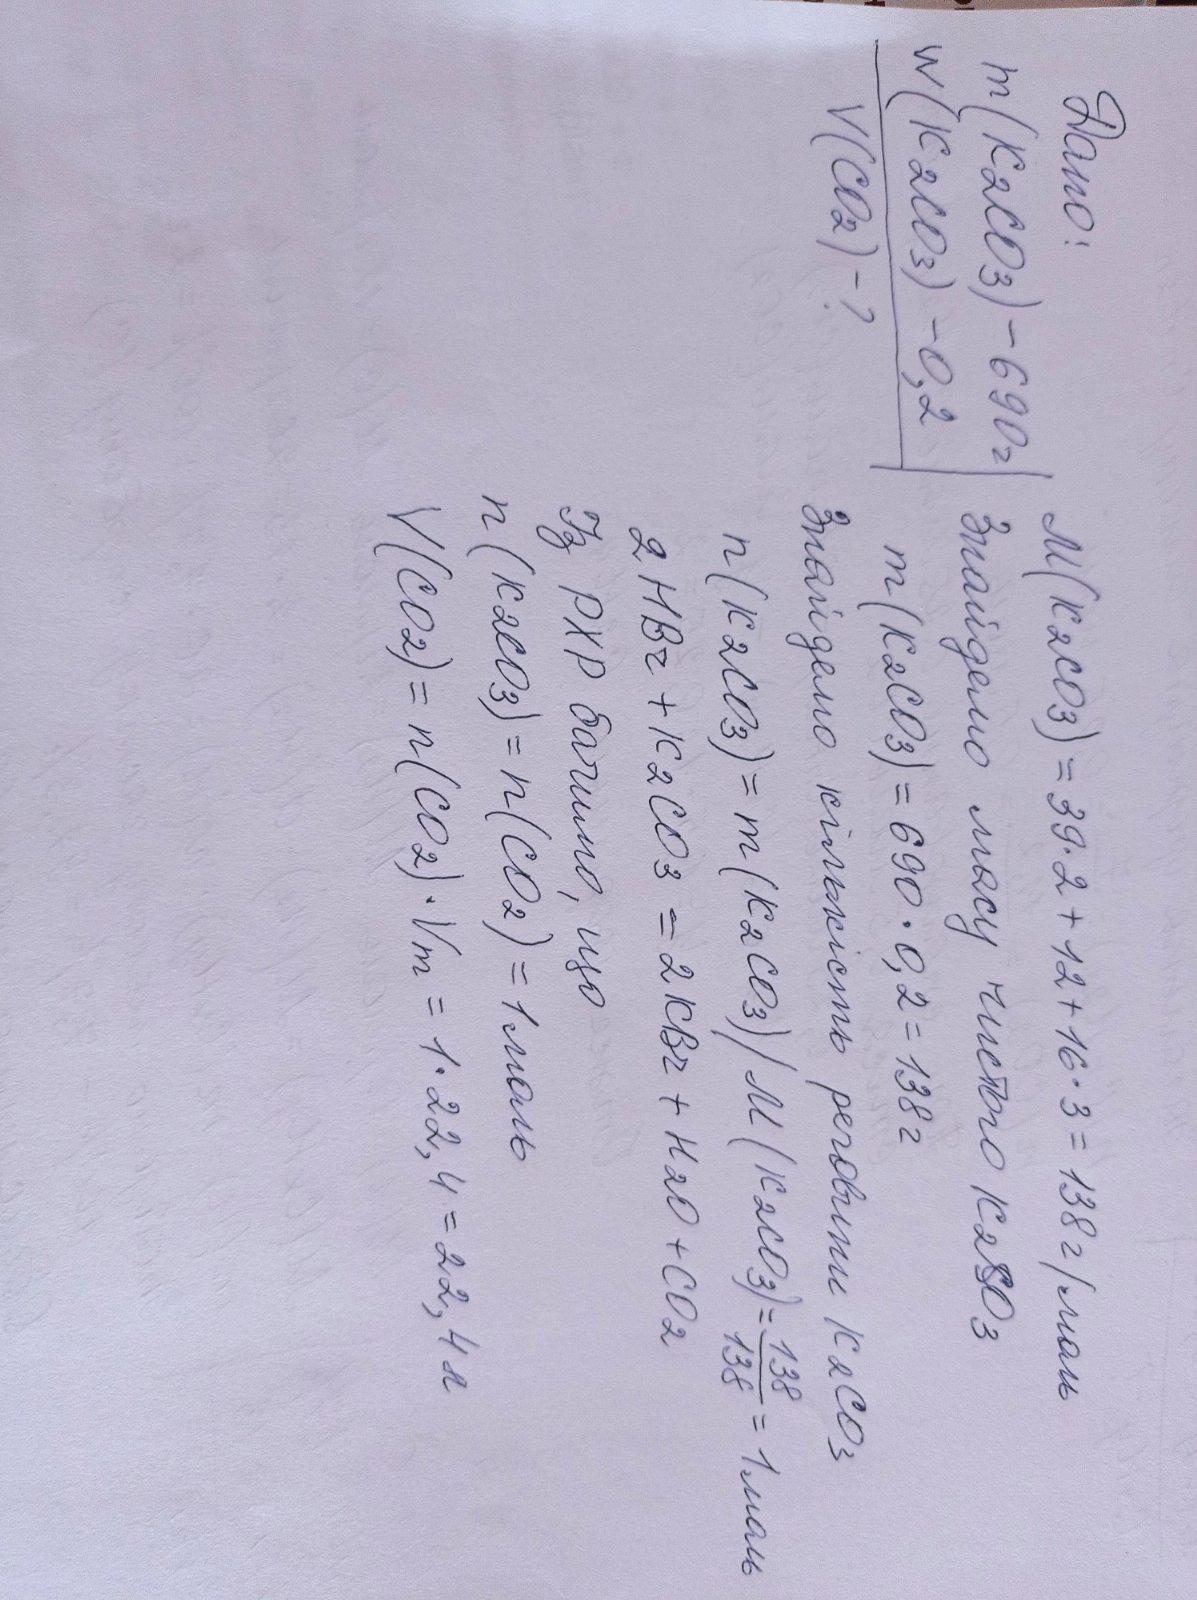 Дано:
m(K2CO3) - 690г
w(K2CO3) - 0,2
V(CO2) - ?
M(K2CO3) = 39·2 + 12 + 16·3 = 138 г/моль
Знайдемо масу чистого K2CO3
m(K2CO3) = 690·0,2 = 138г
Знайдемо кількість речовини K2CO3
n(K2CO3) = m(K2CO3)/M(K2CO3) = 138/138 = 1 моль
2HBr + K2CO3 = 2KBr + H2O + CO2
Із РХР бачимо, що
n(K2CO3) = n(CO2) = 1 моль
V(CO2) = n(CO2)·Vm = 1·22,4 = 22,4 л